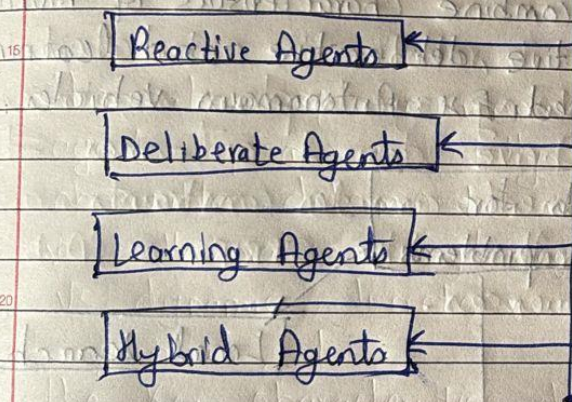 15
Reactive Agents
Deliberate Agents
Learning Agents
20
Hybrid Agents